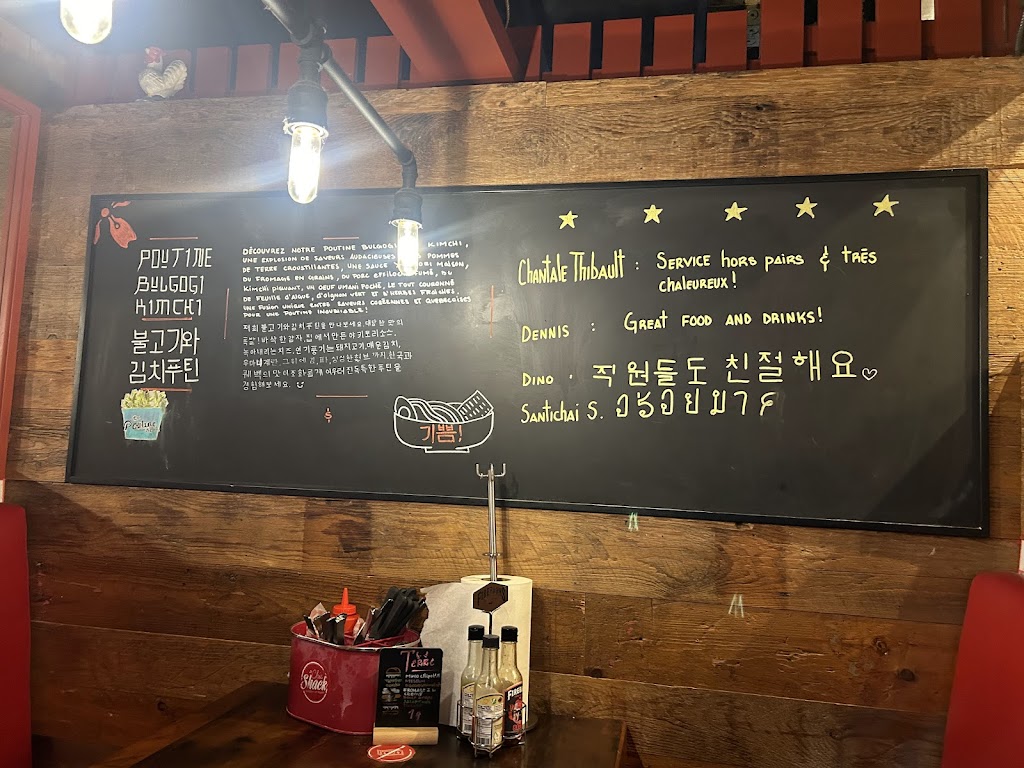 POUTINE
BULGOGI
KIMCHI
불고기와
김치푸틴
DÉCOUVREZ NOTRE POUTINE BULGOGI KIMCHI,
UNE EXPLOSION DE SAVEURS AUDACIEUSES POMMES
DE TERRE CROUSTILLANTES, UNE SAUCE MAISON,
DU FROMAGE EN GRAINS, DU PORC EFFILOCHÉ FUMÉ, DU
KIMCHI PIQUANT, UN OEUF UMAMI POCHÉ, LE TOUT COURONNÉ
DE FEUILLE D'ALGUE, D'OIGNON VERT ET D'HERBES FRAÎCHES.
UNE FUSION UNIQUE ENTRE SAVEURS CORÉENNES ET QUÉBÉCOISES
POUR UNE POUTINE INOUBLIABLE!
저희 불고기와 김치 푸틴을 만나보세요. 대담한 맛의
폭발! 바삭한 감자, 집에서 만든 야키토리 소스,
녹아내리는 치즈, 연기풍기는 돼지고기, 매운 김치,
한국과
퀘벡의 맛이 조화롭게 어우러진 독특한 푸틴을
경험해보세요.
기쁨!
Poutine
CHANTALE THIBAULT : SERVICE HORS PAIRS & TRÈS
CHALEUREUX!
DENNIS : GREAT FOOD AND DRINKS!
DINO : 직원들도 친절해요
SANTICHAI S. อร่อยมาก
Shack